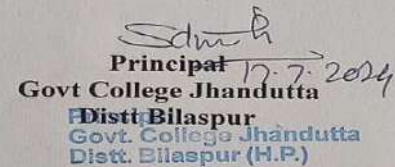 Principal 17.7.2024
Govt College Jhandutta
Distt Bilaspur
Govt. College Jhandutta
Distt. Bilaspur (H.P.)